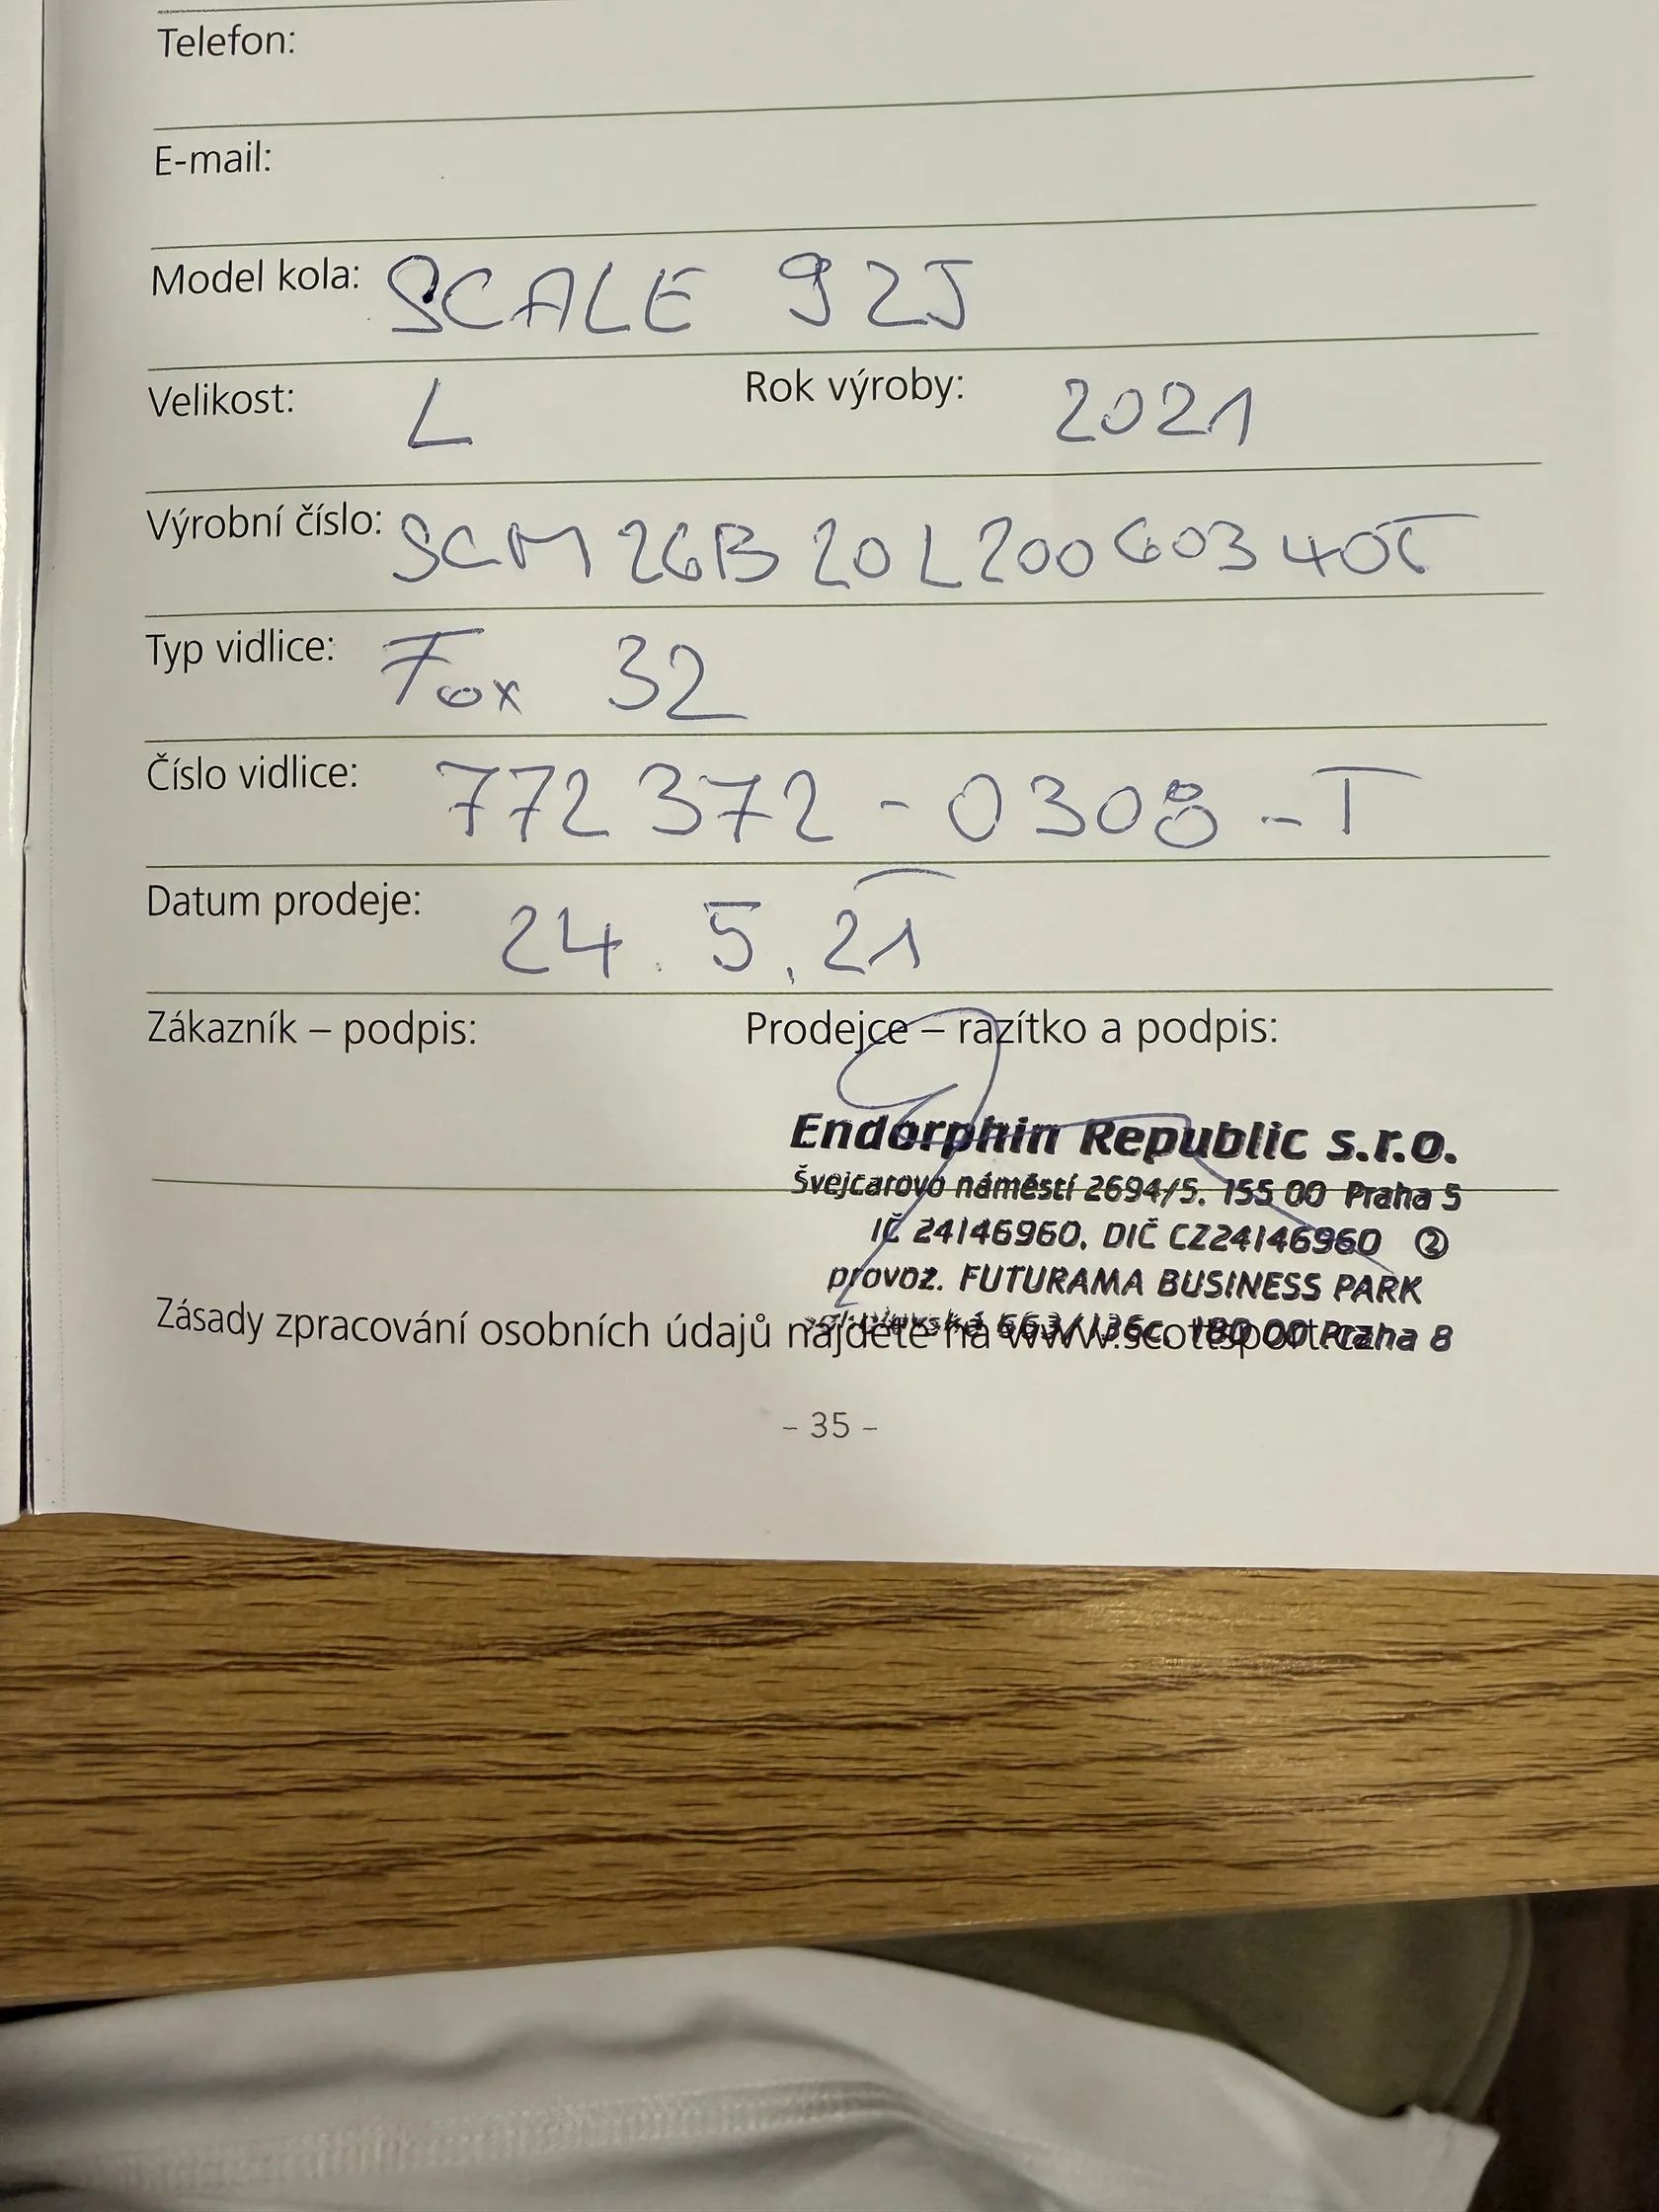 Telefon:
E-mail:
Model kola: SCALE 925
Velikost: L Rok výroby: 2021
Výrobní číslo: SCM26B20L20060340T
Typ vidlice: Fox 32
Číslo vidlice: 772372-0308-T
Datum prodeje: 24. 5. 21
Zákazník – podpis: Prodejce – razítko a podpis:
Endorphin Republic s.r.o.
Švejcarovo náměstí 2694/5, 155 00 Praha 5
IČ 24146960, DIČ CZ24146960 ②
provoz. FUTURAMA BUSINESS PARK
663/136c, 180 00 Praha 8
Zásady zpracování osobních údajů najdete na www.scottsport.cz
- 35 -